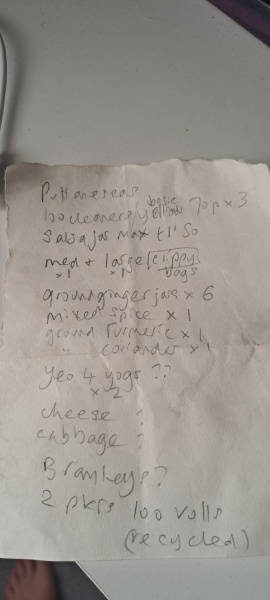 Puttanescas
loo cleaners basic yellow 70p x 3
Salsa jar max £1.50
med + large zippy bags
x1 x1
ground ginger jars x 6
mixed spice x 1
ground turmeric x 1
" coriander x 1
Yeo 4 yogs ??
x 2
cheese ?
cabbage ?
Bramleys?
2 pkts loo rolls
(recycled)